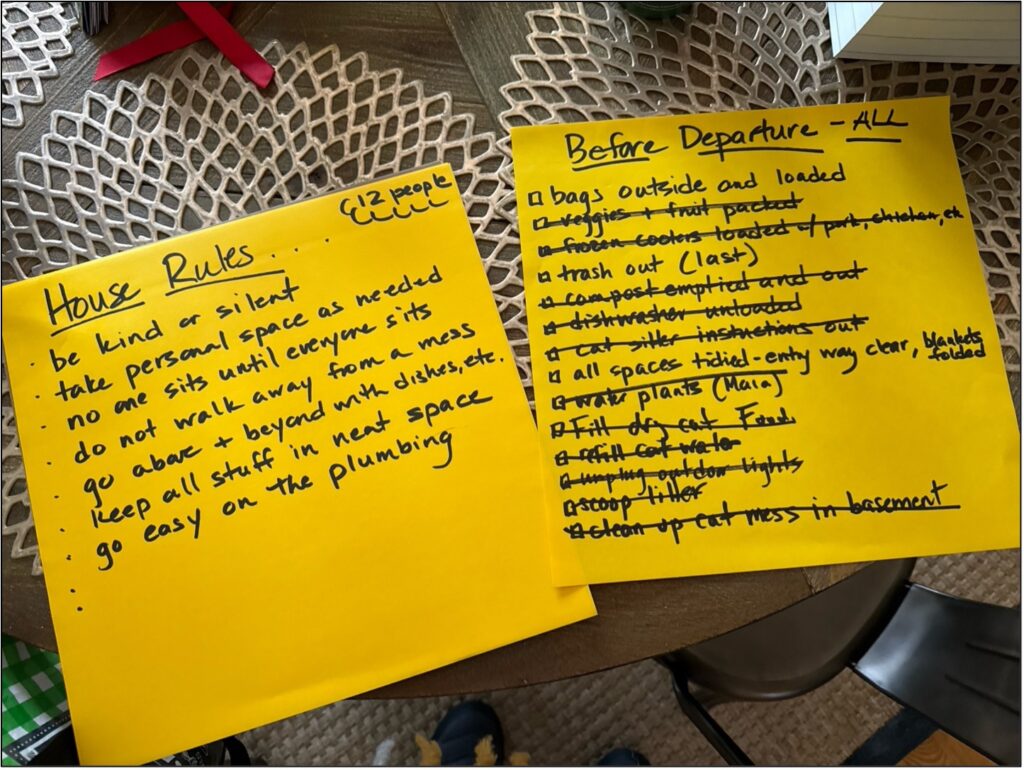 (12 people
House Rules...
· be kind or silent
· take personal space as needed
· no one sits until everyone sits
· do not walk away from a mess
· go above + beyond with dishes, etc.
· keep all stuff in neat space
· go easy on the plumbing
·
·
Before Departure - ALL
□ bags outside and loaded
□ veggies + fruit packed
□ frozen coolers loaded w/ pork, chicken, etc
□ trash out (last)
□ compost emptied and out
□ dishwasher unloaded
□ cat sitter instructions out
□ all spaces tidied - entry way clear, blankets folded
□ water plants (Maia)
□ Fill dry cat Food
□ refill cat water
□ unplug outdoor lights
□ scoop litter
□ clean up cat mess in basement